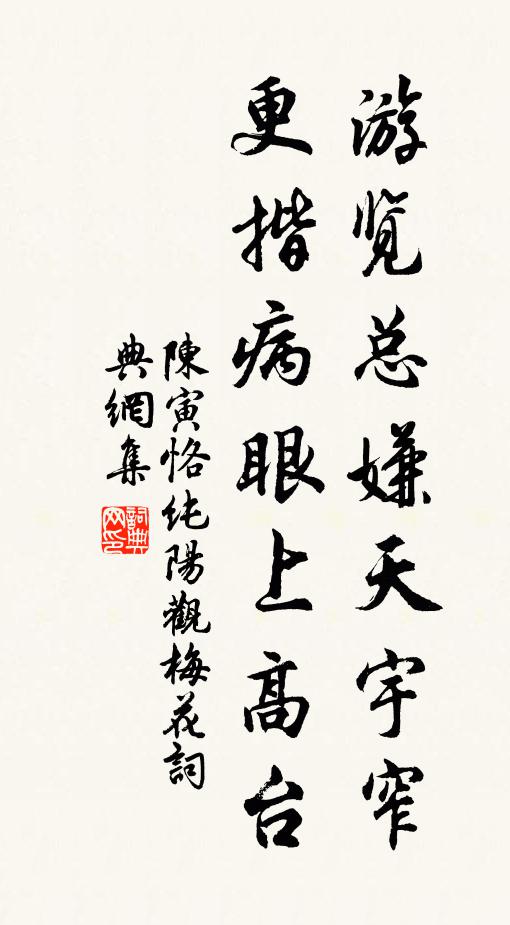 游览总嫌天宇窄
更揩病眼上高台
陳寅恪纯陽觀梅花詞
典網集
詞典网印